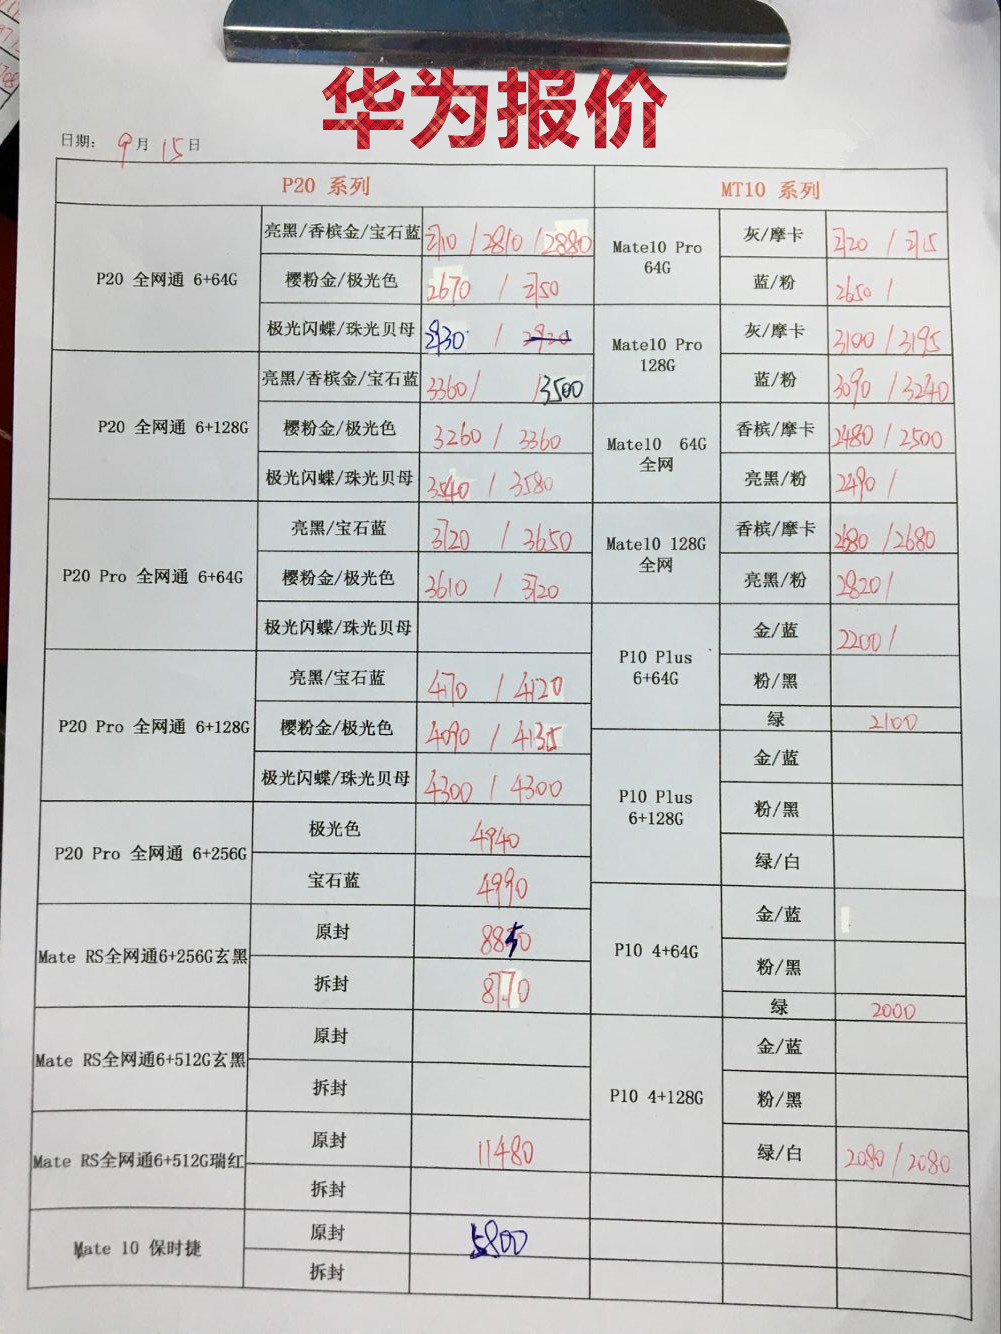 华为报价
日期: 9月 15日
P20 系列
P20 全网通 6+64G
亮黑/香槟金/宝石蓝 2710 / 2810 / 2880
樱粉金/极光色 2670 / 2750
极光闪蝶/珠光贝母 2930 /
P20 全网通 6+128G
亮黑/香槟金/宝石蓝 3360 / / 3500
樱粉金/极光色 3260 / 3360
极光闪蝶/珠光贝母 3540 / 3580
P20 Pro 全网通 6+64G
亮黑/宝石蓝 3720 / 3650
樱粉金/极光色 3610 / 3720
极光闪蝶/珠光贝母
P20 Pro 全网通 6+128G
亮黑/宝石蓝 4170 / 4120
樱粉金/极光色 4090 / 4135
极光闪蝶/珠光贝母 4300 / 4300
P20 Pro 全网通 6+256G
极光色 4940
宝石蓝 4990
Mate RS全网通6+256G玄黑
原封 8850
拆封 8770
Mate RS全网通6+512G玄黑
原封
拆封
Mate RS全网通6+512G瑞红
原封 11480
拆封
Mate 10 保时捷
原封 5800
拆封
MT10 系列
Mate10 Pro
64G
灰/摩卡 2720 / 2715
蓝/粉 2650 /
Mate10 Pro
128G
灰/摩卡 3100 / 3195
蓝/粉 3090 / 3240
Mate10 64G
全网
香槟/摩卡 2480 / 2500
亮黑/粉 2490 /
Mate10 128G
全网
香槟/摩卡 2680 / 2680
亮黑/粉 2820 /
P10 Plus
6+64G
金/蓝 2200 /
粉/黑
绿 2100
P10 Plus
6+128G
金/蓝
粉/黑
绿/白
P10 4+64G
金/蓝
粉/黑
绿 2000
P10 4+128G
金/蓝
粉/黑
绿/白 2080 / 2080